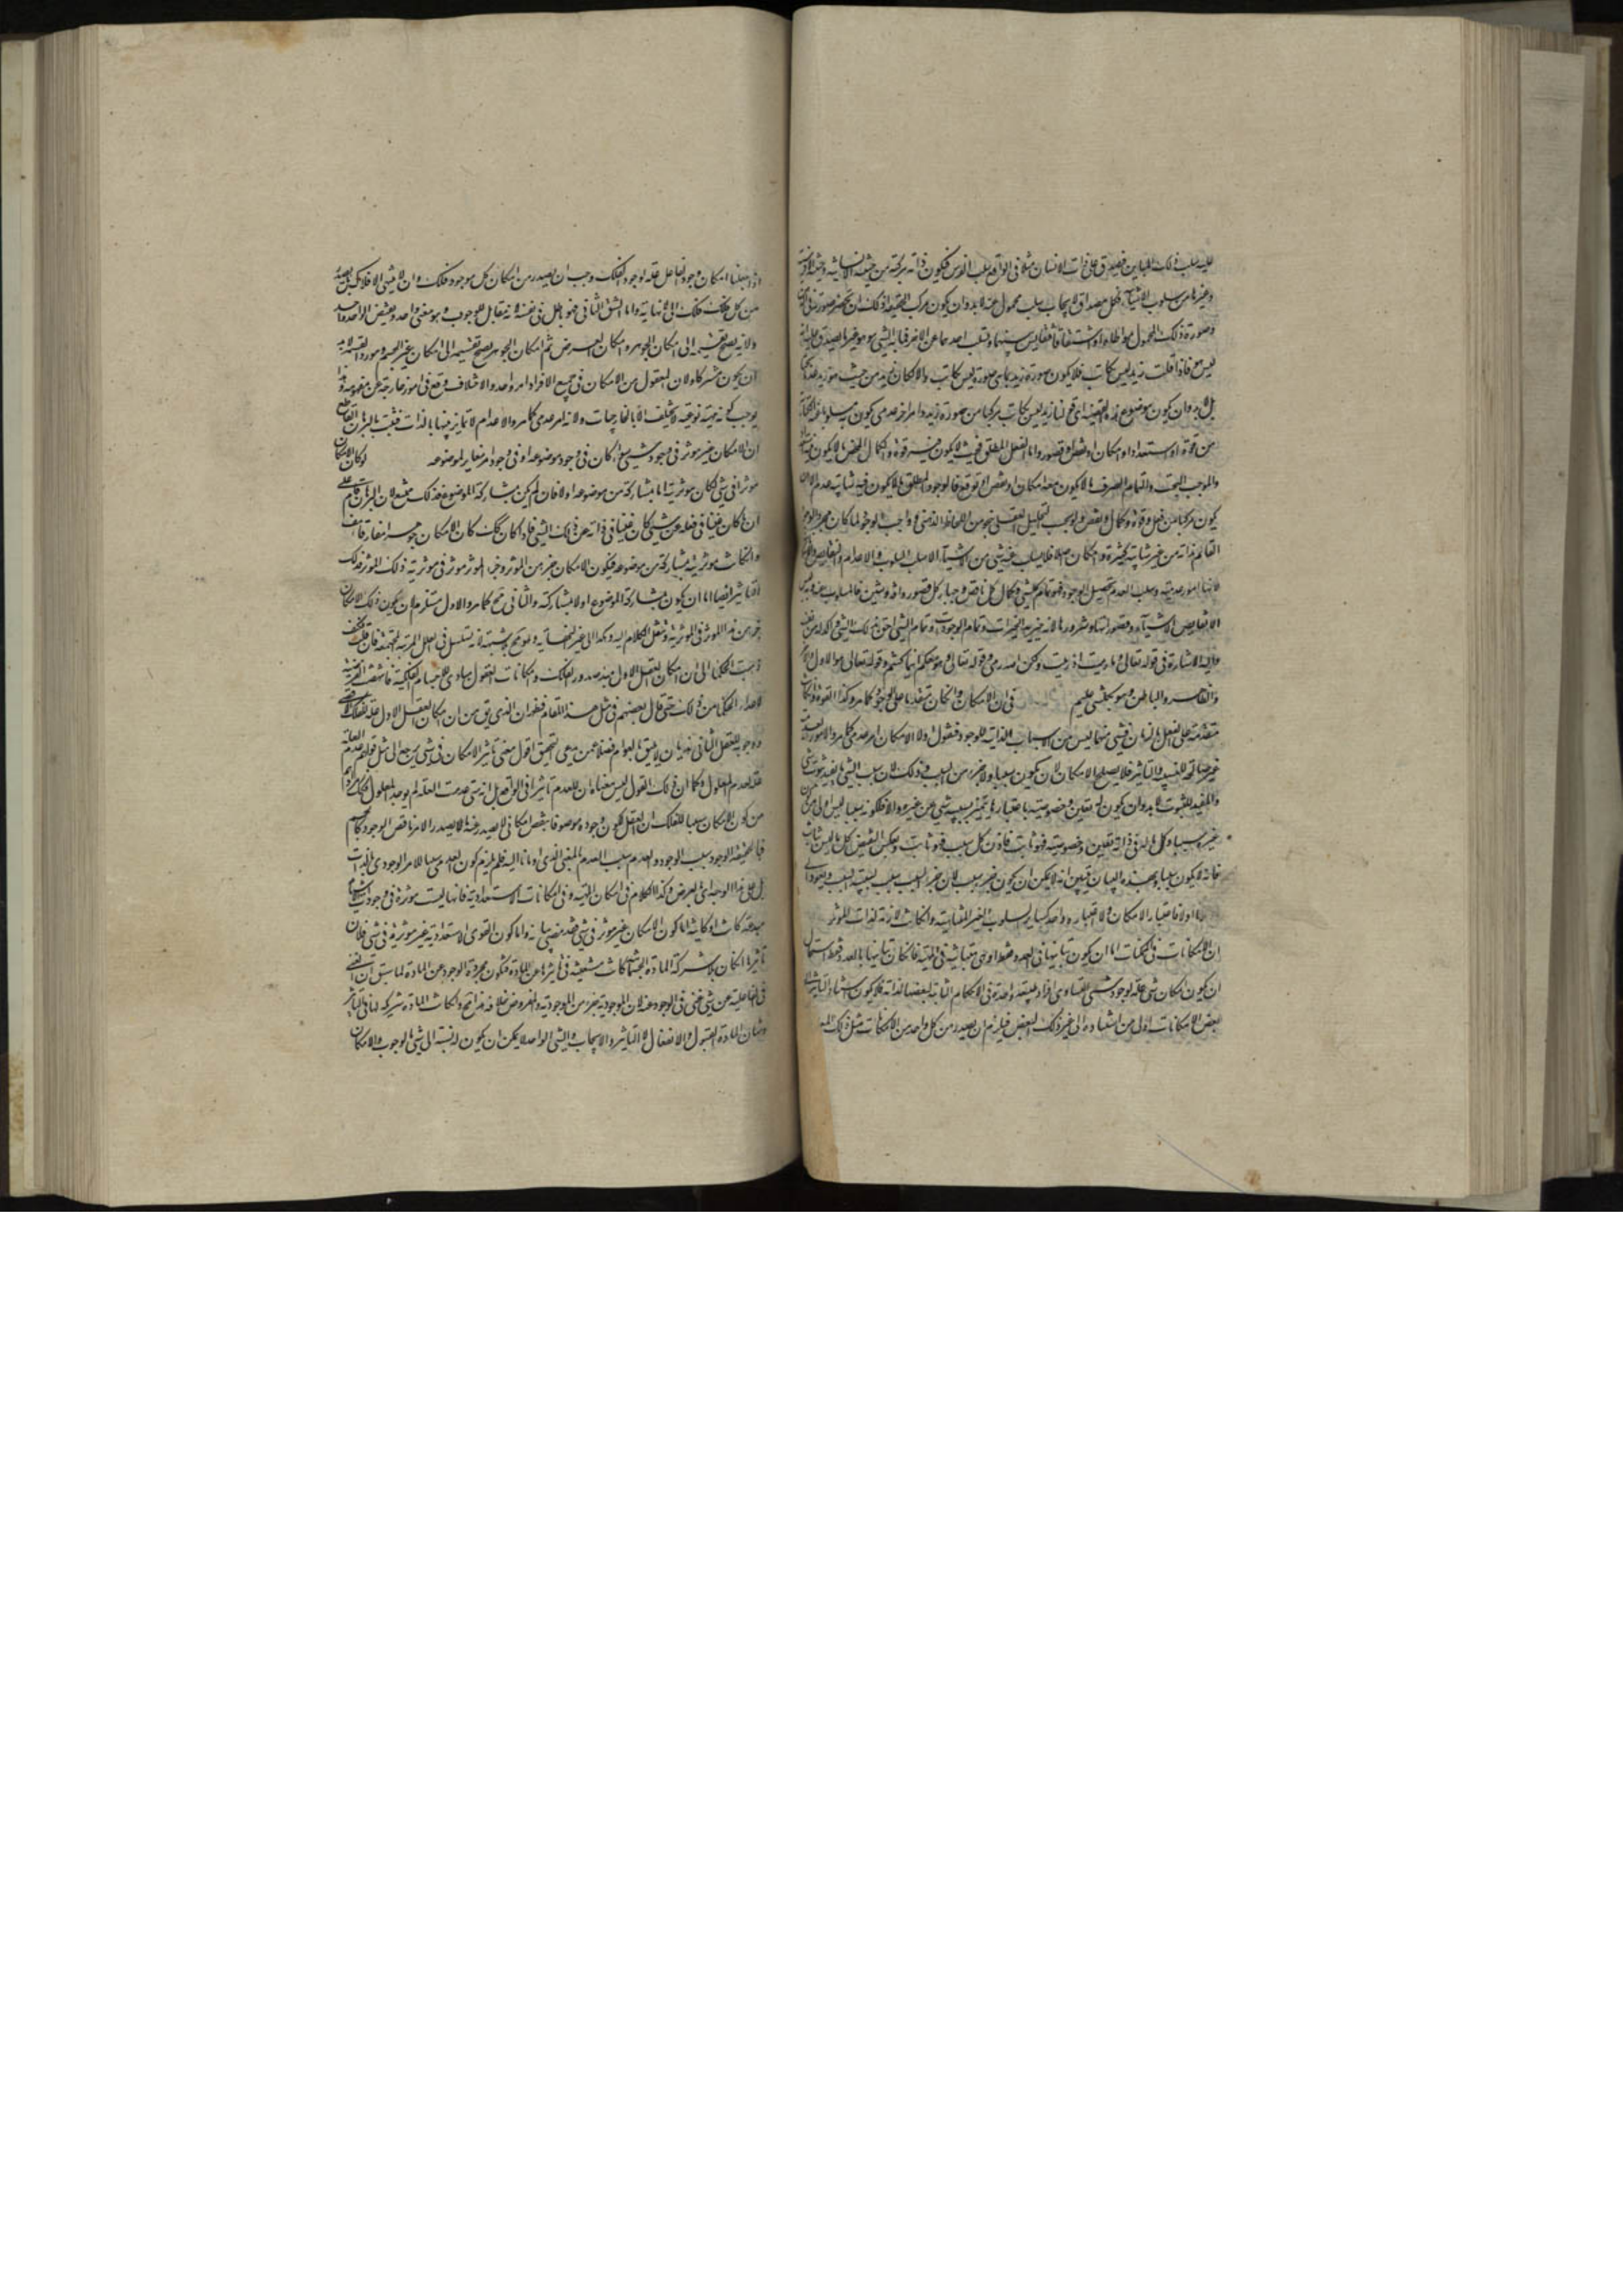 عليه سلب ذلك المباين فيصدق على ذات الانسان مثلا فى الواقع سلب الفرس فيكون ذاته مركبة من حيثية الانسانية وحيثية اللافرسية
وغيرها من سلوب الاشياء فكل مصداق لايجاب سلب محمول عنه لابد وان يكون مركب الحقيقة اذ لك ان تحضر صورته فى
وصورة ذلك المحمول مواطاة او اشتقاقا فتقايس بينهما وتسلب احدهما عن الاخر فما به الشىء هو هو غير ما يصدق عليه انه
ليس هو فاذا قلت زيد ليس بكاتب فلا يكون صورة زيد بما هى صورة زيد ليس بكاتب والا لكان زيد من حيث هو زيد عدما بحتا
بل لابد وان يكون موضوع هذه القضية اى قولنا زيد ليس بكاتب مركبا من صورة زيد وامر اخر عدمى يكون به مسلوبا عنه الكتابة
من قوة او استعداد او امكان او نقص او قصور واما الفعل المطلق فحيث لا يكون فيه قوة والكمال المحض ما لا يكون فيه
والوجوب البحت والتمام الصرف ما لا يكون معه امكان او نقص او توقع فالوجود المطلق ما لا يكون فيه شائبة عدم الا ان
يكون مركبا من فعل وقوة وكمال ونقص ولو بحسب التحليل العقلى بنحو من اللحاظ الذهنى وواجب الوجود لما كان مجرد الوجود
القائم بذاته من غير شائبة كثرة وامكان اصلا فلا يسلب عنه شىء من الاشياء الا سلب السلوب والاعدام والنقايص والامكانات
لانها امور عدمية وسلب العدم تحصيل الوجود فهو تمام كل شىء وكمال كل ناقص وجبار كل قصور وافة وشين فالمسلوب عنه وبه ليس
الا نقايص الاشياء وقصوراتها وشرورها لانه خيرية الخيرات وتمام الوجودات وتمام الشىء احق بذلك الشىء واكد له من نفسه
واليه الاشارة فى قوله تعالى وما رميت اذ رميت ولكن الله رمى وقوله تعالى وهو معكم اينما كنتم وقوله تعالى هو الاول والاخر
والظاهر والباطن وهو بكل شىء عليم فى ان الامكان وان كان متقدما على الوجود كما مر وكذا القوة وان كانت
متقدمة على الفعل بالزمان فشىء منهما ليس من الاسباب الذاتية للوجود فنقول اولا الامكان امر عدمى كما مر والامور العدمية
غير صالحة للسببية والتاثير فلا يصلح الامكان لان يكون سببا ولا جزء من السبب وذلك لان سبب الشىء ما يفيد ثبوت شىء
والمفيد للثبوت لابد وان يكون له تعين وخصوصية باعتبارها يتميز سببية شىء عن غيره والا فلكونه سببا ليس اولى من
غيره سببا وكل ما له فى ذاته تعين وخصوصية فهو ثابت فاذن كل سبب فهو ثابت وبعكس النقيض كل ما ليس بثابت
فانه لا يكون سببا وبهذا البيان تبين انه لا يمكن ان يكون جزء سبب لان جزء السبب سبب لسببية السبب ويعود الى
ما اولا فاعتبار الامكان ولا اعتباره واحد كساير السلوب الغير المتناهية وان كانت لازمة لذات المؤثر
ان الامكانات فى الممكنات اما ان يكون تباينها فى العدد فقط او هى متباينة فى الماهية فان كان تباينها بالعدد فقط استحال
ان يكون امكان شىء علة لوجود شىء لتساوى افراد طبيعة واحدة فى الاحكام الثابتة لبعضها لذاته فلا يكون استناد التاثير الى
بعض الامكانات اولى من استناده الى غير ذلك البعض فيلزم ان يصدر من كل واحد من الامكانات مثل ذلك الاثر
واذا جعلنا امكان وجود الفاعل علة لوجود الفلك وجب ان يصدر من امكان كل موجود فلك وان لا ينتهى الافلاك بل يصدر
من كل فلك فلك الى لا نهاية واما الشق الثانى فهو باطل فى نفسه لانه مقابل الوجوب وهو معنى واحد ونقيض الواحد واحد
ولانه يصح تقسيمه الى امكان الجوهر وامكان العرض ثم امكان الجوهر يصح تقسيمه الى امكان غير الجسم ومورد القسمة لابد
ان يكون مشتركا ولان المعقول من الامكان فى جميع الافراد امر واحد والاختلاف وقع فى امور خارجة عن مفهومه وذا
يوجب كونه مهية نوعية لا يختلف الا بالخارجيات ولانه امر عدمى كما مر والاعدام لا تمايز فيها بالذات فثبت بالبرهان القاطع
ان الامكان غير مؤثر فى وجود شىء سواء كان فى وجود موضوعه او فى وجود امر مغاير لموضوعه لو كان الامكان
مؤثرا فى شىء لكان مؤثريته اما بمشاركة من موضوعه او لا فان لم يكن بمشاركة الموضوع فذلك ممتنع لان البرهان قام على
ان ما كان غنيا فى فعله عن شىء كان غنيا فى ذاته عن ذلك الشىء فلو كان كذلك كان الامكان جوهرا مفارقا هف
وان كانت مؤثريته بمشاركة من موضوعه فيكون الامكان جزء من المؤثر وجزء المؤثر مؤثر فى مؤثرية ذلك المؤثر فذلك
التاثير ايضا اما ان يكون بمشاركة الموضوع او لا بمشاركته والثانى مح كما مر والاول مستلزم لان يكون ذلك الامكان
جزء من هذا المؤثر فى المؤثرية وننقل الكلام اليه وهكذا الى غير النهاية وهو مح بوسيلة انه تسلسل فى العلل المرتبة المجتمعة فان قلت فكيف
ذهبت الحكماء الى ان امكان العقل الاول مبدء صدور الفلك وامكانات العقول مبادى الاجسام الفلكية
لاعداء الحكماء من ذلك حتى قال بعضهم فى مثل هذا المقام فظهر ان الذى يق من ان امكان العقل الاول علة لفلك الاقصى
ووجوبه للعقل الثانى هذيان لا يليق بالعوام فضلا عمن يدعى التحقيق اقول معنى تاثير الامكان فى شىء يرجع الى مثل قولهم عدم العلة
علة لعدم المعلول وكما ان ذلك القول ليس معناه ان للعدم تاثيرا فى الواقع بل انه متى عدمت العلة لم يوجد المعلول فكذا مرادهم
من كون الامكان سببا للفلك ان العقل لكون وجوده موصوفا بنقص امكانى لا يصدر عنه الا ناقص الوجود كالجسم
فبالحقيقة الوجود سبب الوجود والعدم سبب العدم بالمعنى الذى اومانا اليه فلم يلزم كون العدمى سببا للامر الوجودى بالذات
بل على هذا الوجه اى بالعرض وكذا الكلام فى امكان الماهية وفى امكانات الاستعدادية فانها ليست مؤثرة فى وجود شىء
مبدعة كانت او كاينة اما كون الامكان غير مؤثر فى شىء فقد مضى بيانه واما كون القوى الاستعدادية غير مؤثرة فى شىء فلان
تاثيرها ان كان بلا شركة المادة الجسمية كانت مستغنية فى تاثيرها عن المادة فتكون مجردة الوجود عن المادة لما سبق ان الغنى
فى الفاعلية عن شىء غنى فى الوجود عنه لان الموجودية جزء من الموجدية والمفروض خلافه هذا مح وان كانت المادة شريكة لها فى التاثير
وشان المادة القبول والانفعال لا التاثير والايجاب والشىء الواحد لا يمكن ان يكون له نسبة الى شىء بالوجوب والامكان